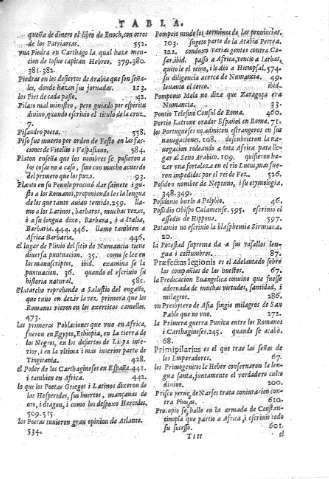 TABLA.
questa de dinero el libro de Enoch, con otros
de los Patriarcas. 552.
vna Piedra en Carthago la qual haze men-
cion de Iosue capitan Hebreo. 379.380.
381.382.
Piedras en los desiertos de Arabia que son seña-
les, donde hazen sus jornadas. 113.
los Pies de cada passo. 42.
Pilato mal ministro, pero guiado por espiritu
diuino, quando escriuio el titulo de la cruz.
7.
Pisandro poeta. 558.
Piso fue muerto por orden de Festo en las fac-
ciones de Vitellio i Vespasiano. 584.
Platon enseña que los nombres se pusieron a
las cosas no a caso, sino con mucho acuerdo
del primero que los puso. 93.
Plauto en su Penulo procurò dar sainete i gu-
sto a los Romanos, proponiendoles la lengua
de los que tanto auian temido. 259.
mo a los Latinos, barbaros, muchas vezes,
i a su lengua dize, Barbara, i a Italia,
Barbaria. 444. 446. llamo tambien a
Africa Barbaria 446.
el lugar de Plinio del sitio de Numancia tiene
diuersa puntuacion. 35. como se lee en
los manuscriptos, ibid. examina se la
puntuacion. 36. quando el escriuio su
historia natural. 585.
Plutarcho reprehende a Salustio del engaño,
que tuuo en dezir la vez primera que los
Romanos vieron en los exercitos camellos.
473.
las primeras Poblaciones que vuo en Africa,
fueron en Egypto, Ethiopia, en la tierra de
los Negros, en los desiertos de Libya infe-
rior, i en la vltima i mas inferior parte de
Tingitania. 428.
el Poder de los Carthagineses en España 441.
i tambien en Africa. 442.
lo que los Poetas Griegos i Latinos dixeron de
las Hesperides, sus huertos, mançanas de
oro, i dragon, i como los despojo Hercules.
509. 515.
los Poetas tuuieron gran opinion de Atlante.
334.
Pompeio mudo los terminos de las prouincias.
103. sugeto parte de la Arabia Petrea.
122. condeno varias gentes contra Ce-
sar. ibid. passò a Africa, vencio a Iarbas,
quito le el reino, i le dio a Hiempsal. 574.
su diligencia acerca de Numancia. 49.
leuanto el cerco. ibid.
Pomponio Mela no dize que Zaragoça era
Numancia. 33.
Pontio Telesini Consul de Roma. 460.
Portio Latrone orador Español en Roma. 71.
los Portugueses no admiten estrangeros en su
nauegaciones. 108. descubrieron la na-
uegacion rodeando a toda Africa para lle-
gar al Seno Arabico. 109. quisieron ha-
zer vna fortaleza en el rio Lucu, mas fue-
ron impedidos por el rei de Fez. 526.
Posidon nombre de Neptuno, i su etymologia.
348. 359.
Posidonio hurto a Polybio. 46.
Possidio Obispo Calamense. 595. escriuio el
assedio de Hippona. 597.
Potamio no escriuio la blasfemia Sirmiana.
20.
la Potestad suprema da a sus vassallos len-
gua i costumbres. 87.
Præfectus legionis es el Adelantado sobre
las compañias de las huestes. 67.
la Predicacion Euangelica conuino que fuesse
adornada de muchas virtudes, santidad, i
milagros. 286.
vn Presbytero de Asia fingio milagros de San
Pablo que no vuo. 172.
la Primera guerra Punica entre los Romanos
i Carthagineses. 245. quando se acabò.
68.
Primipilarius es el que trae las señas de
los Emperadores. 67.
los Primogenitos de Heber conseruaron la len-
gua santa, juntamente el verdadero culto
diuino. 200.
vn Phocas. 610.
601.
Tttt el